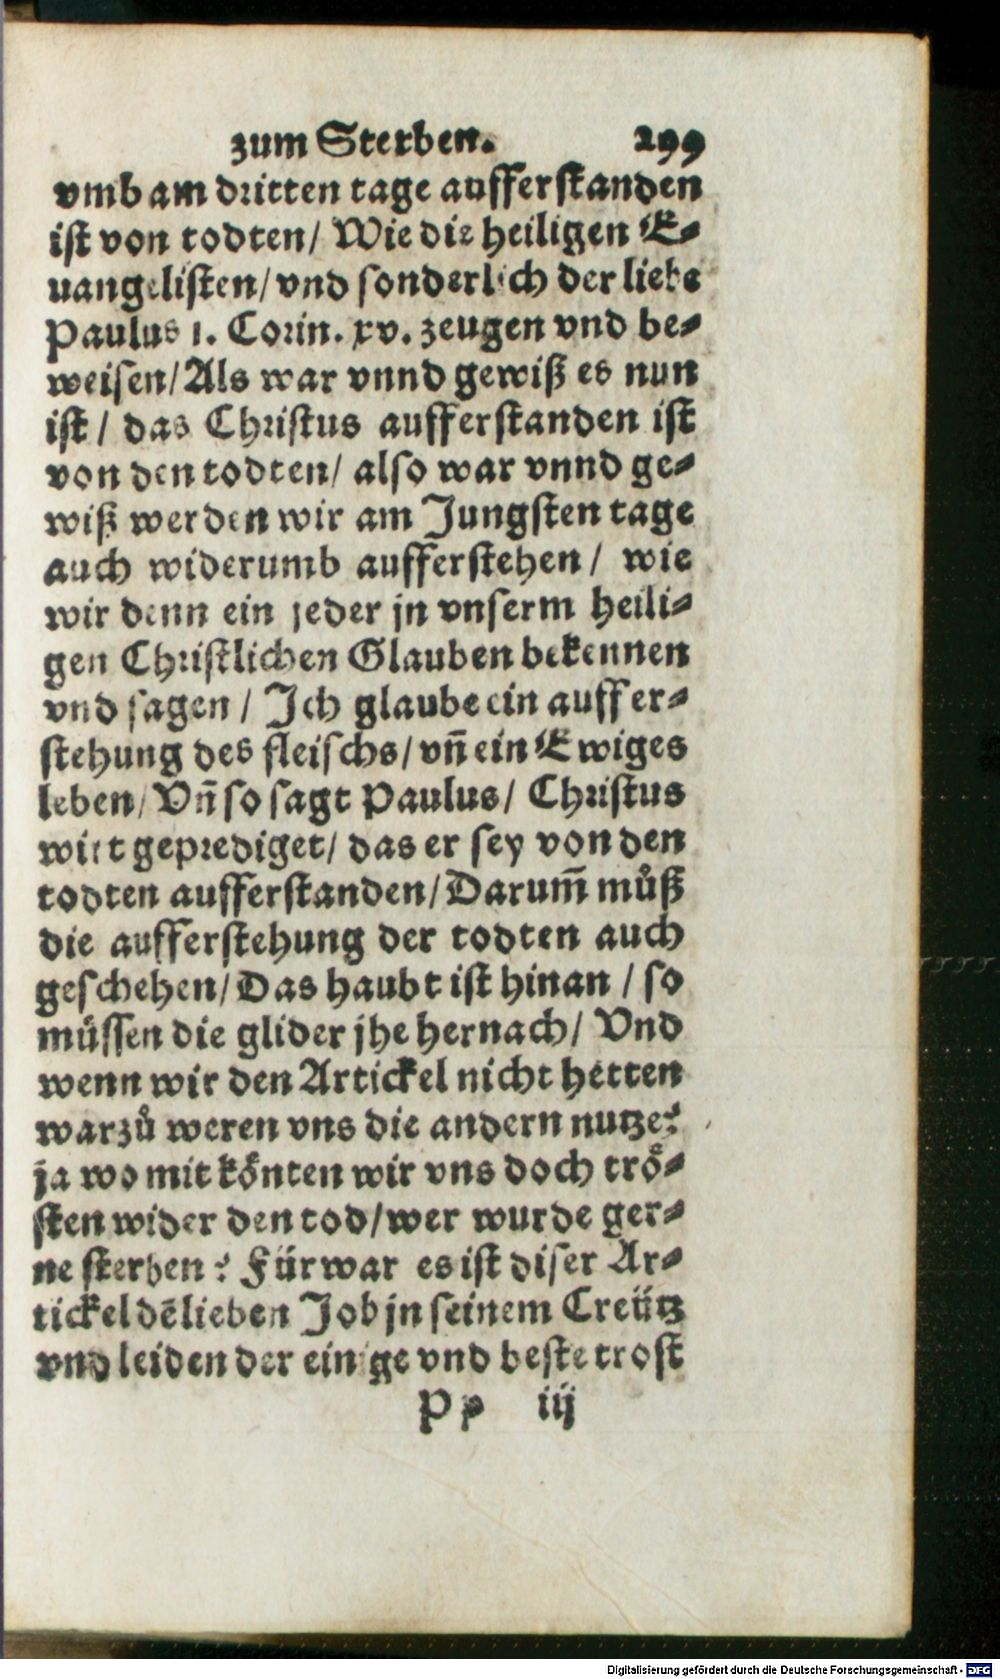 zum Sterben. 299
vmb am dritten tage aufferstanden
ist von todten/ Wie die heiligen E⸗
uangelisten/ vnd sonderlich der liebe
Paulus 1. Corin. xv. zeugen vnd be⸗
weisen/ Als war vnnd gewiß es nun
ist / das Christus aufferstanden ist
von den todten/ also war vnnd ge⸗
wiß werden wir am Jungsten tage
auch widerumb aufferstehen / wie
wir denn ein jeder jn vnserm heili⸗
gen Christlichen Glauben bekennen
vnd sagen / Ich glaube ein auffer⸗
stehung des fleischs/ vn̄ ein Ewiges
leben/ Vn̄ so sagt Paulus/ Christus
wirt geprediget/ das er sey von den
todten aufferstanden/ Darum̄ muͦß
die aufferstehung der todten auch
geschehen/ Das haubt ist hinan / so
müssen die glider jhe hernach/ Vnd
wenn wir den Artickel nicht hetten
warzuͦ weren vns die andern nutze?
ja wo mit koͤnten wir vns doch troͤ⸗
sten wider den tod/ wer wurde ger⸗
ne sterben? Fürwar es ist diser Ar⸗
tickel dē lieben Job jn seinem Creütz
vnd leiden der einige vnd beste trost
Pp iij
Digitalisierung gefördert durch die Deutsche Forschungsgemeinschaft - DFG